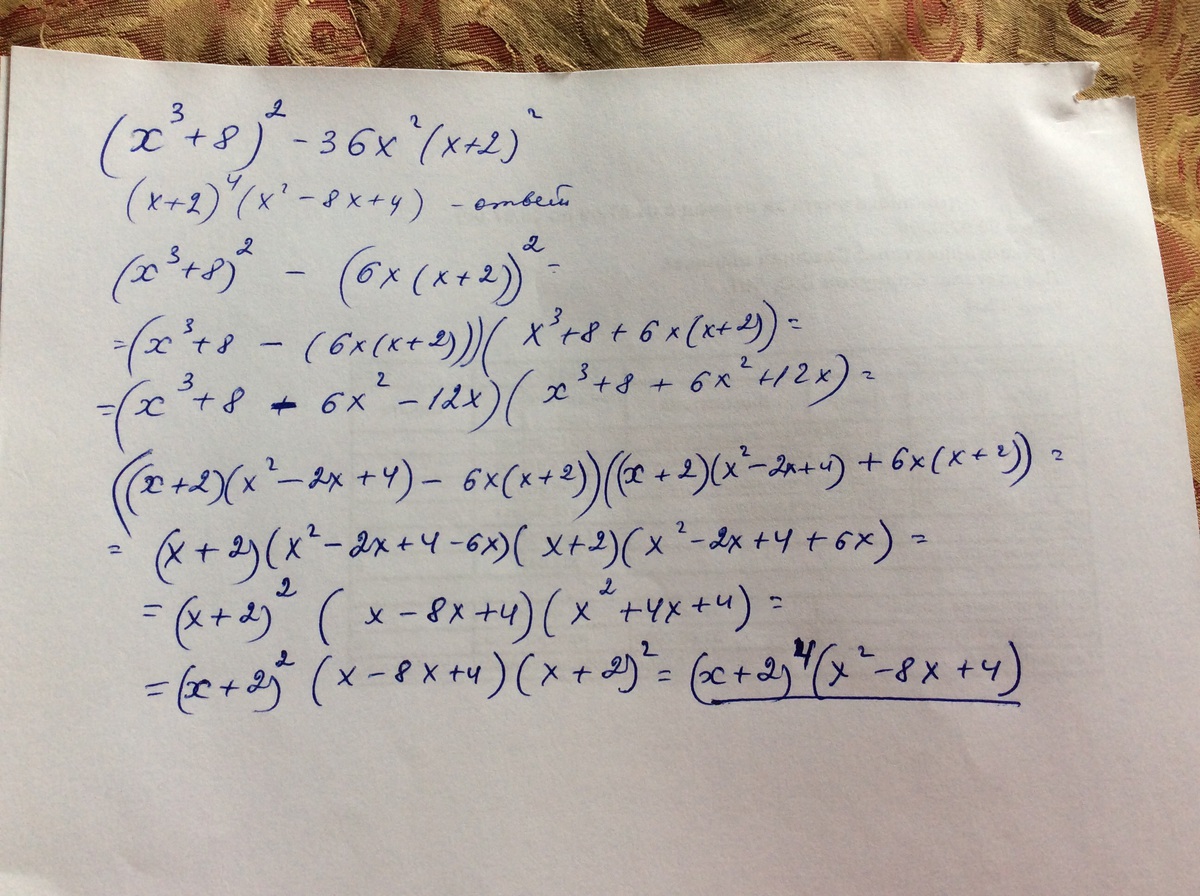 (x³+8)² - 36x²(x+2)²
(x+2)⁴(x² - 8x+4) - ответ
(x³+8)² - (6x(x+2))² =
=(x³+8 - (6x(x+2)))(x³+8 + 6x(x+2)) =
=(x³+8 - 6x² - 12x)(x³+8 + 6x²+12x) =
((x+2)(x² - 2x + 4) - 6x(x+2))((x+2)(x² - 2x+4) + 6x(x+2)) =
= (x+2)(x² - 2x+4 - 6x)(x+2)(x² - 2x+4 + 6x) =
= (x+2)² (x - 8x+4)(x² + 4x+4) =
= (x+2)² (x - 8x+4)(x+2)² = (x+2)⁴(x² - 8x+4)